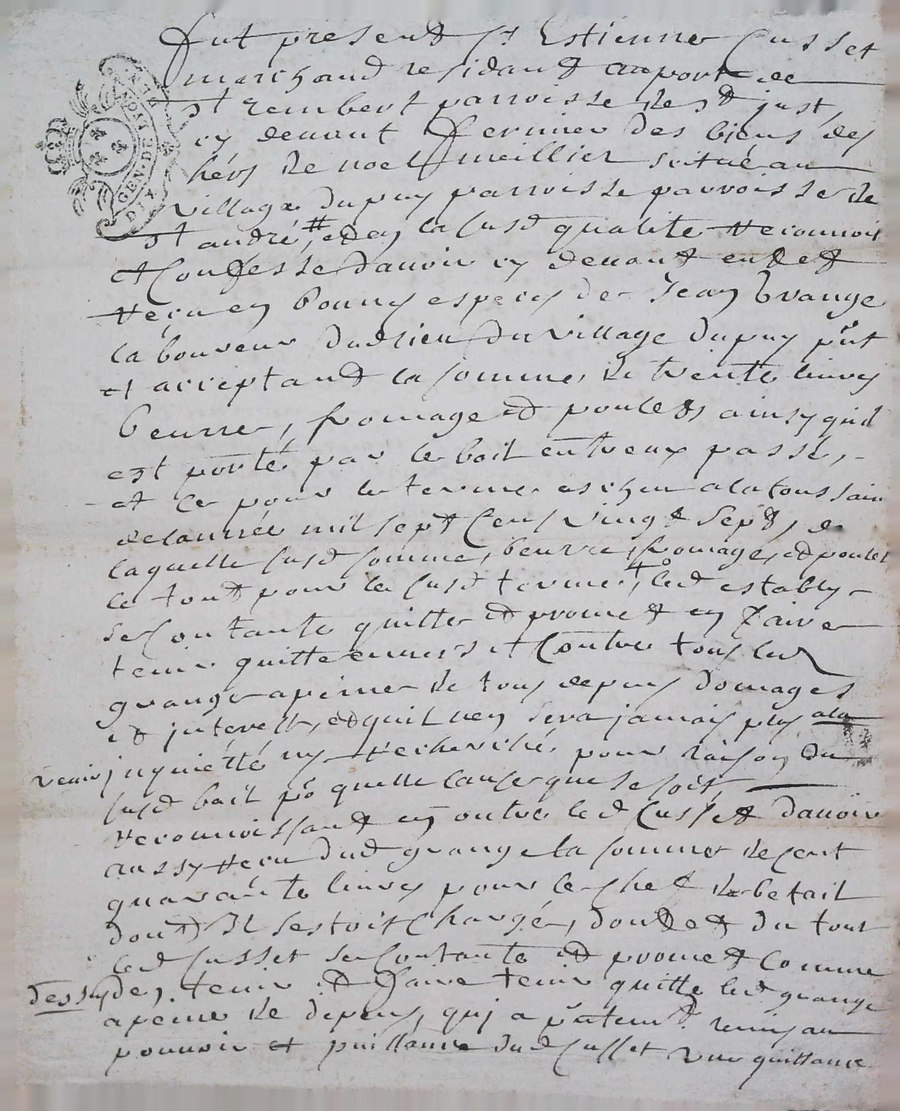 fut present sr Estienne Cusset
marchand residant au port de
st rembert parroisse de st just,
cy devant fermier des biens des
hers de noel meillier scitué au
village du puy parroisse parroisse de
st andré, # et en la susd qualité reconnoit
et Confesse d'avoir cy devant eu et
receu en bonnes especes de Jean Grange
laboureur dud lieu du village du puy pnt
et acceptand la somme de trente livres
beurre, fromage et poulets ainsy quil
est porté par le bail entreux passé,
et ce pour le terme escheu a la toussain
de lannée mil sept Cens vingt sept, de
laquelle susd somme, beurre, fromage, et poulet
le tout pour le susd terme, led estably
se Contante quitte et promet en faire
tenir quitte envers et Contre tous led
grange a peine de tous depens domages
et interests, et quil nen sera jamais plus a la
venir inquietté ny recherché pour raison du
susd bail po quelle cause que se soit,
reconnoissant en outre led Cusset davoir
aussy receu dud grange la somme de cent
quarante livres pour le chef de betail
dont Il sestoit chargé, dont et du tout
led Cusset se Contante et promet Comme
dessus de, tenir et faire tenir quitte led grange
a peine de depens, qui a pntement remis au
pouvoir et puissance dud Cusset une quittance
GEN. DE LYON
DIX DEN.